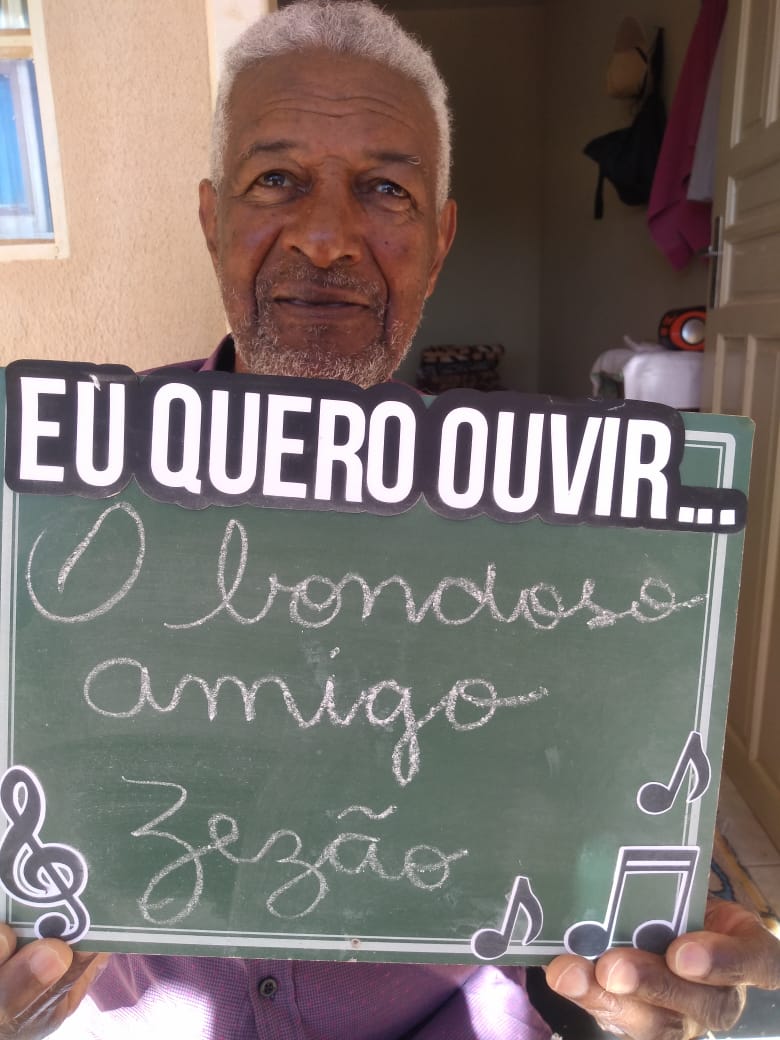 EU QUERO OUVIR...
O bondoso
amigo
Zezão